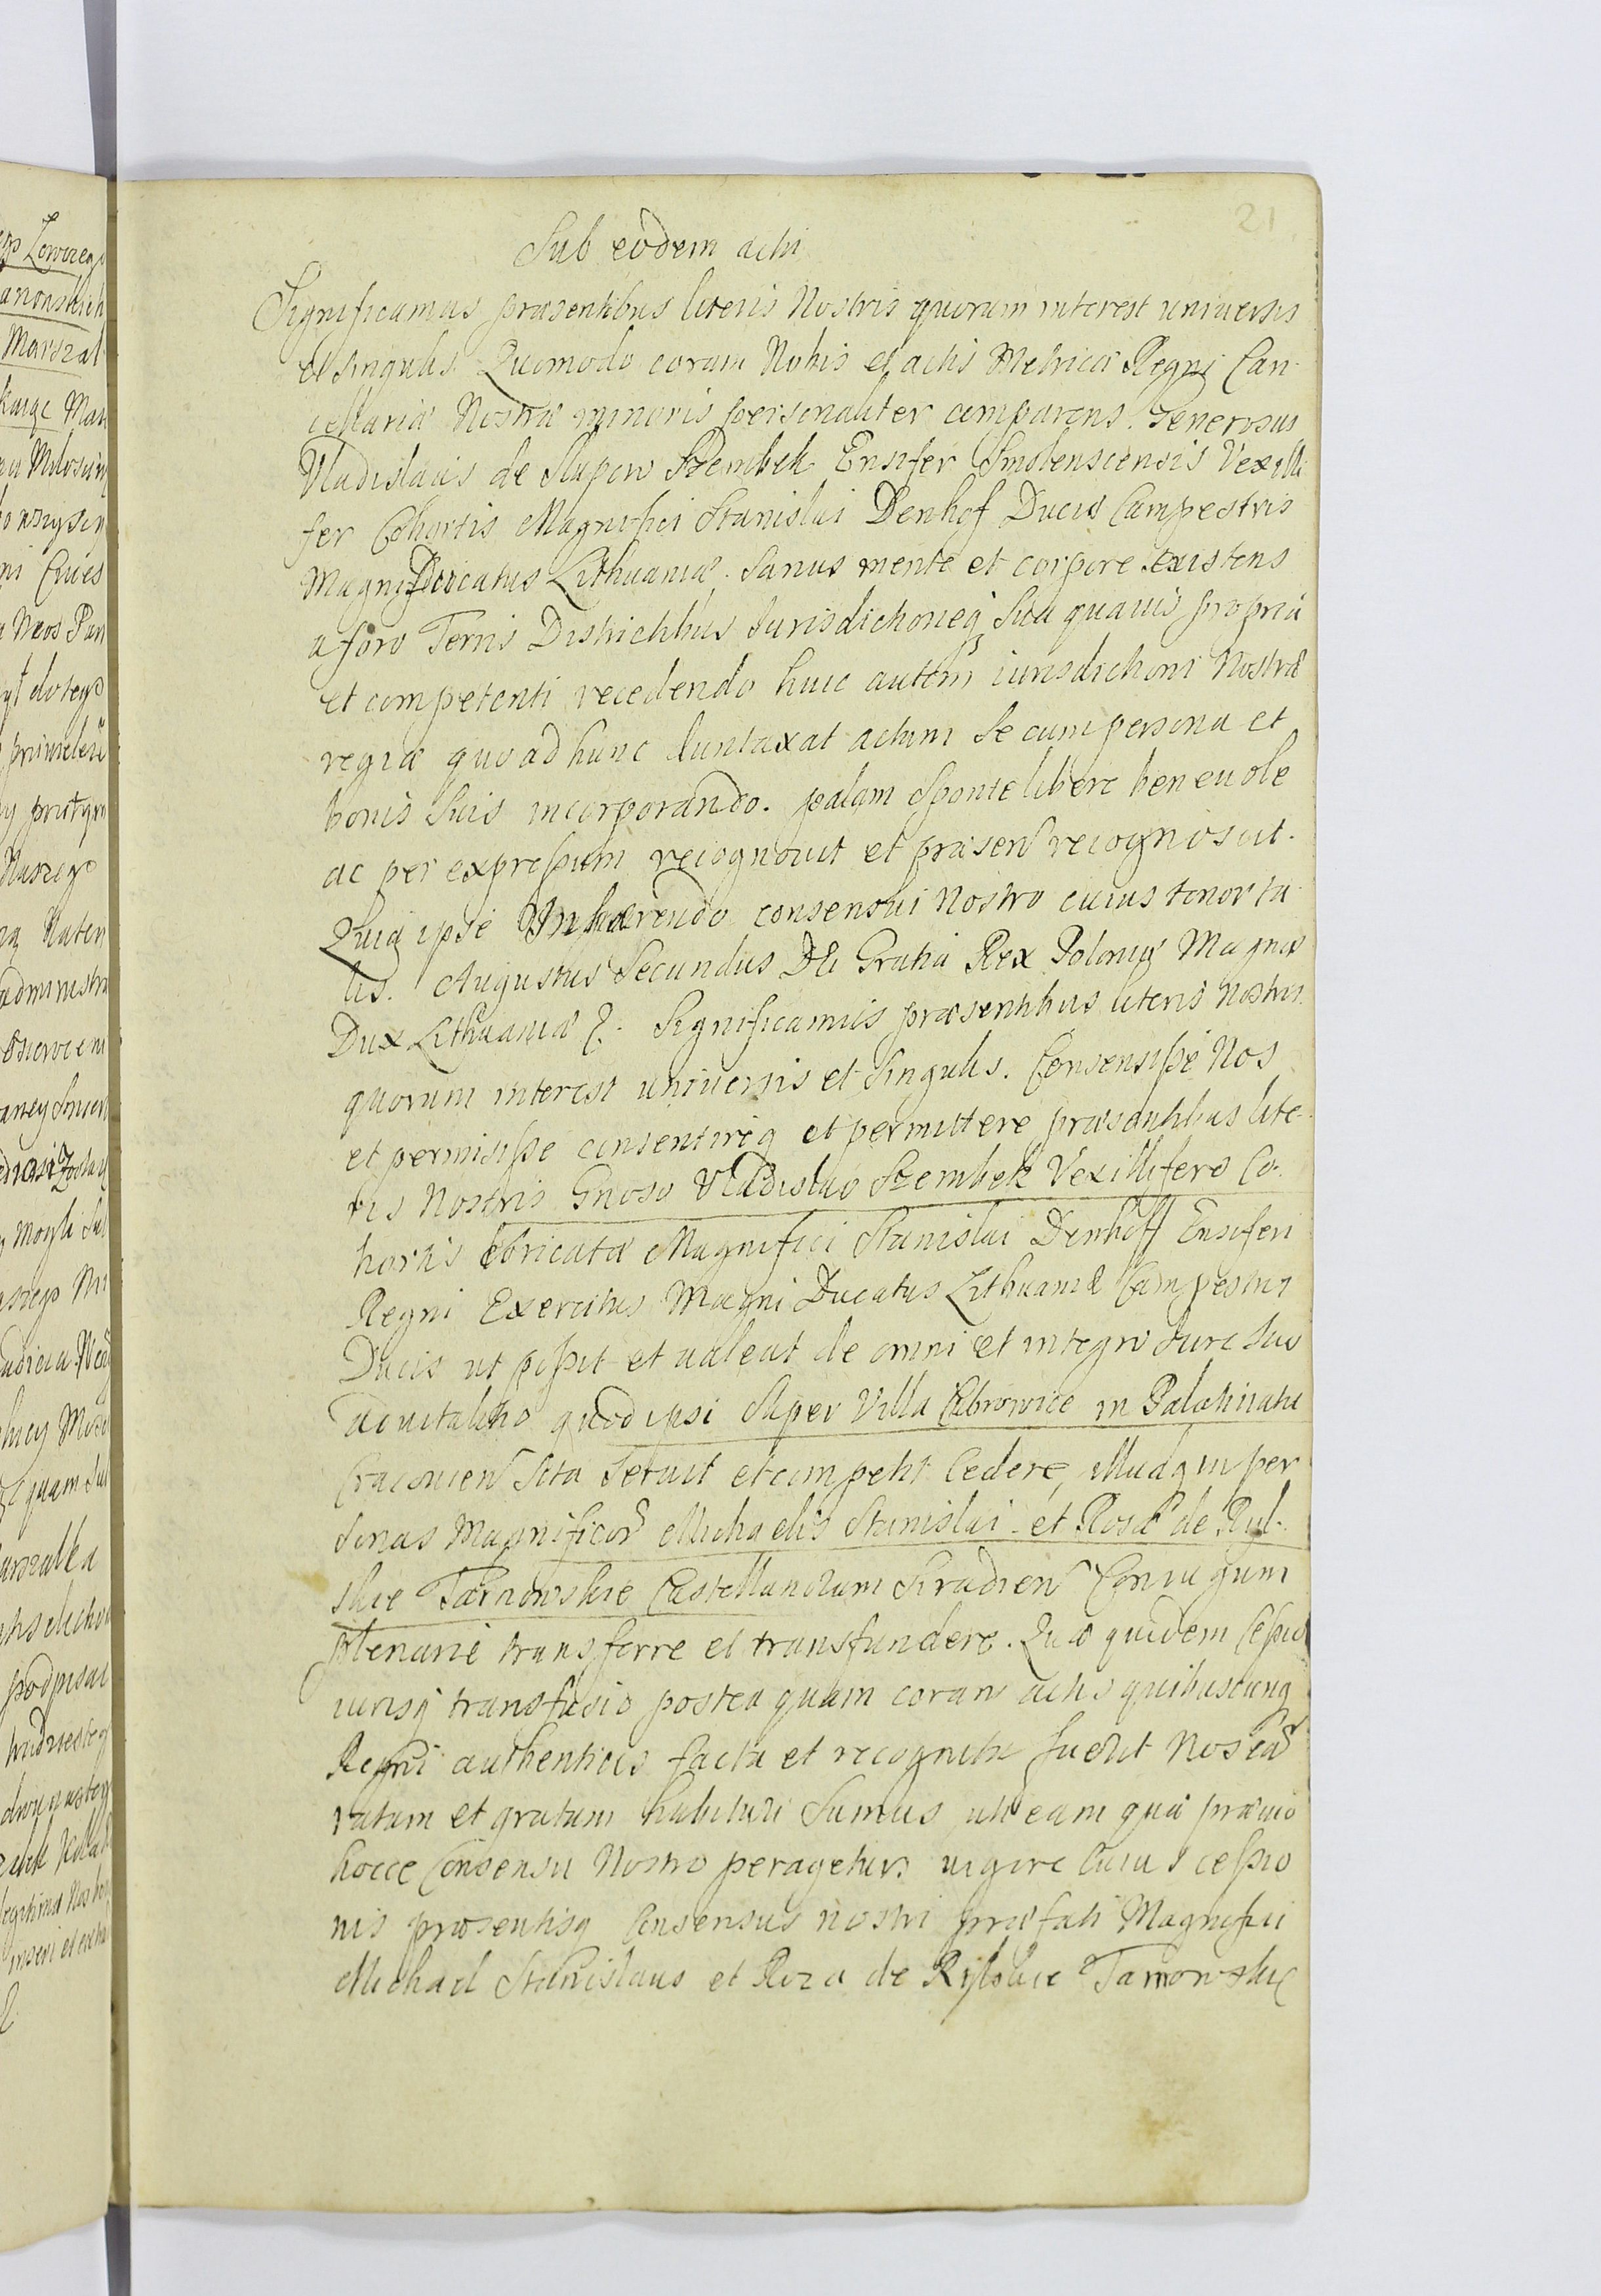 21
Sub eodem actu
Significamus præsentibus literis Nostris quorum interest universis
et singulis. Quomodo coram Nobis et actis Metricæ Regni Can-
cellariæ Nostræ minoris personaliter comparens. Generosus
Vladislaus de Slupow Szembek Ensifer Smolenscensis Vexilli
fer Cohortis Magnifici Stanislai Denhof Ducis Campestris
Magni Ducatus Lithuaniæ. Sanus mente et corpore existens
a foro Terris Districtibus Jurisdictioneq sua quavis propria
et competenti recedendo huic autem jurisdictioni Nostræ
regiæ quo ad hunc duntaxat actum se cum persona et
bonis suis incorporando. palam sponte libere beneuole
ac per expressum recognovit et præsen recognoscit.
Quia ipse Inhærendo consensui Nostro cuius tenor ta
lis. Augustus Secundus Dei Gratia Rex Poloniæ Magnus
Dux Lithuaniæ &. Significamus præsentibus literis Nostris
quorum interest universis et singulis. Consensisse Nos
et permisisse consentireq et permittere præsentibus lite-
ris Nostris Gnoso Vladislao Szembek Vexillifero Co-
hortis loricatæ Magnifici Stanislai Denhoff Ensiferi
Regni Exercitus Magni Ducatus Lithuaniæ Campestris
Ducis ut possit et valeat de omni et integro Jure suo
advitalitio quod ipsi super Villa in Palatinatu
Cracovien sita servit et competit cedere, illudq in per
sonas Magnificor Michaelis Stanislai et Rosæ de Ryl-
skie Tarnowskie Castellanorum Siradien Conjugum
plenarie transferre et transfundere. Quæ quidem cessio
iurisq transfusio postea quam coram actis quibuscunq
Regni authenticis facta et recognita fuerit Nos eã
ratam et gratam habituri sumus uti eam quæ prævio
hocce Consensu Nostro peragetur. vigore cuius cessio
nis præsentisq Consensus nostri præfati Magnifici
Michael Stanislaus et Roza de Rylskie Tarnowskie